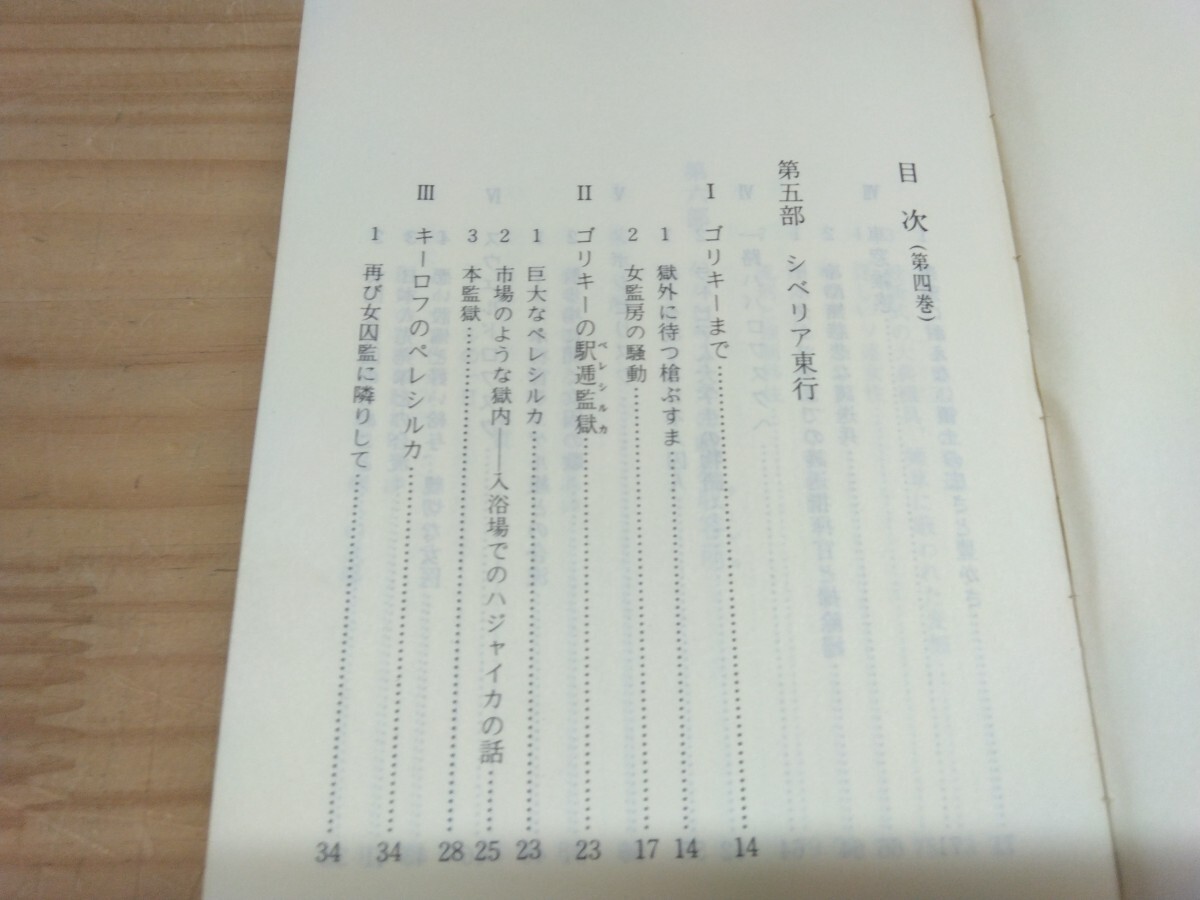 目次(第四巻)
第五部 シベリア東行
Ⅰ ゴリキーまで……14
1 獄外に待つ槍ぶすま……14
2 女監房の騒動……17
Ⅱ ゴリキーの駅逓監獄ペレシルカ……23
1 巨大なペレシルカ……23
2 市場のような獄内――入浴場でのハジャイカの話……25
3 本監獄……28
Ⅲ キーロフのペレシルカ……34
1 再び女囚監に隣りして……34